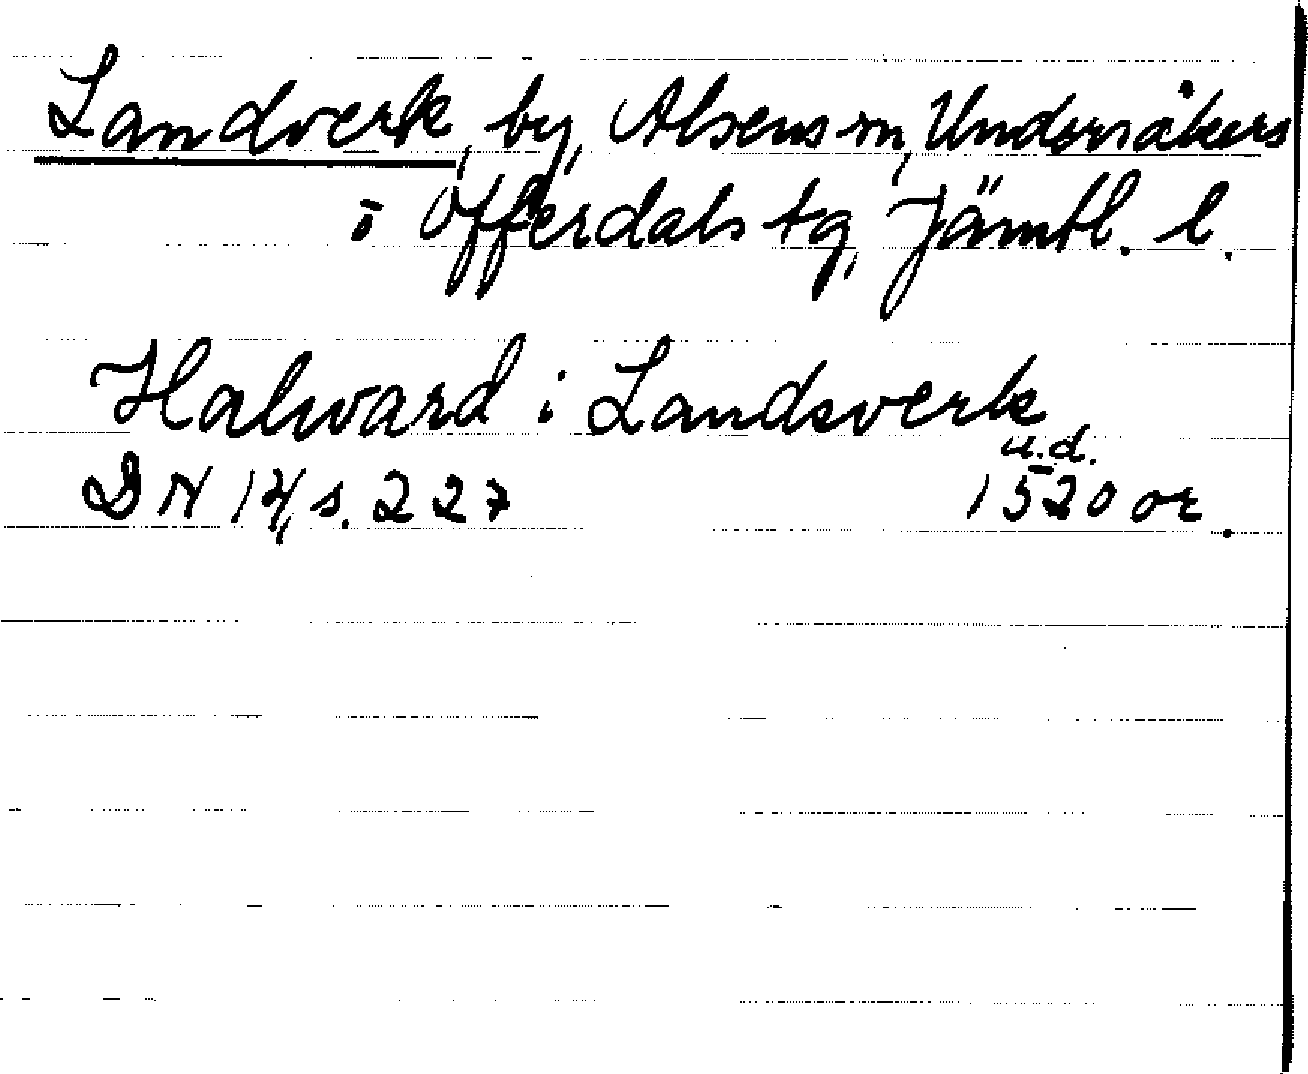 Landverk, by, Alsens sn, Undersåkers
o Offerdals tg, Jämtl. l.
Halvard i Landsverk
u.d.
DN 14, s. 227 1520 or.